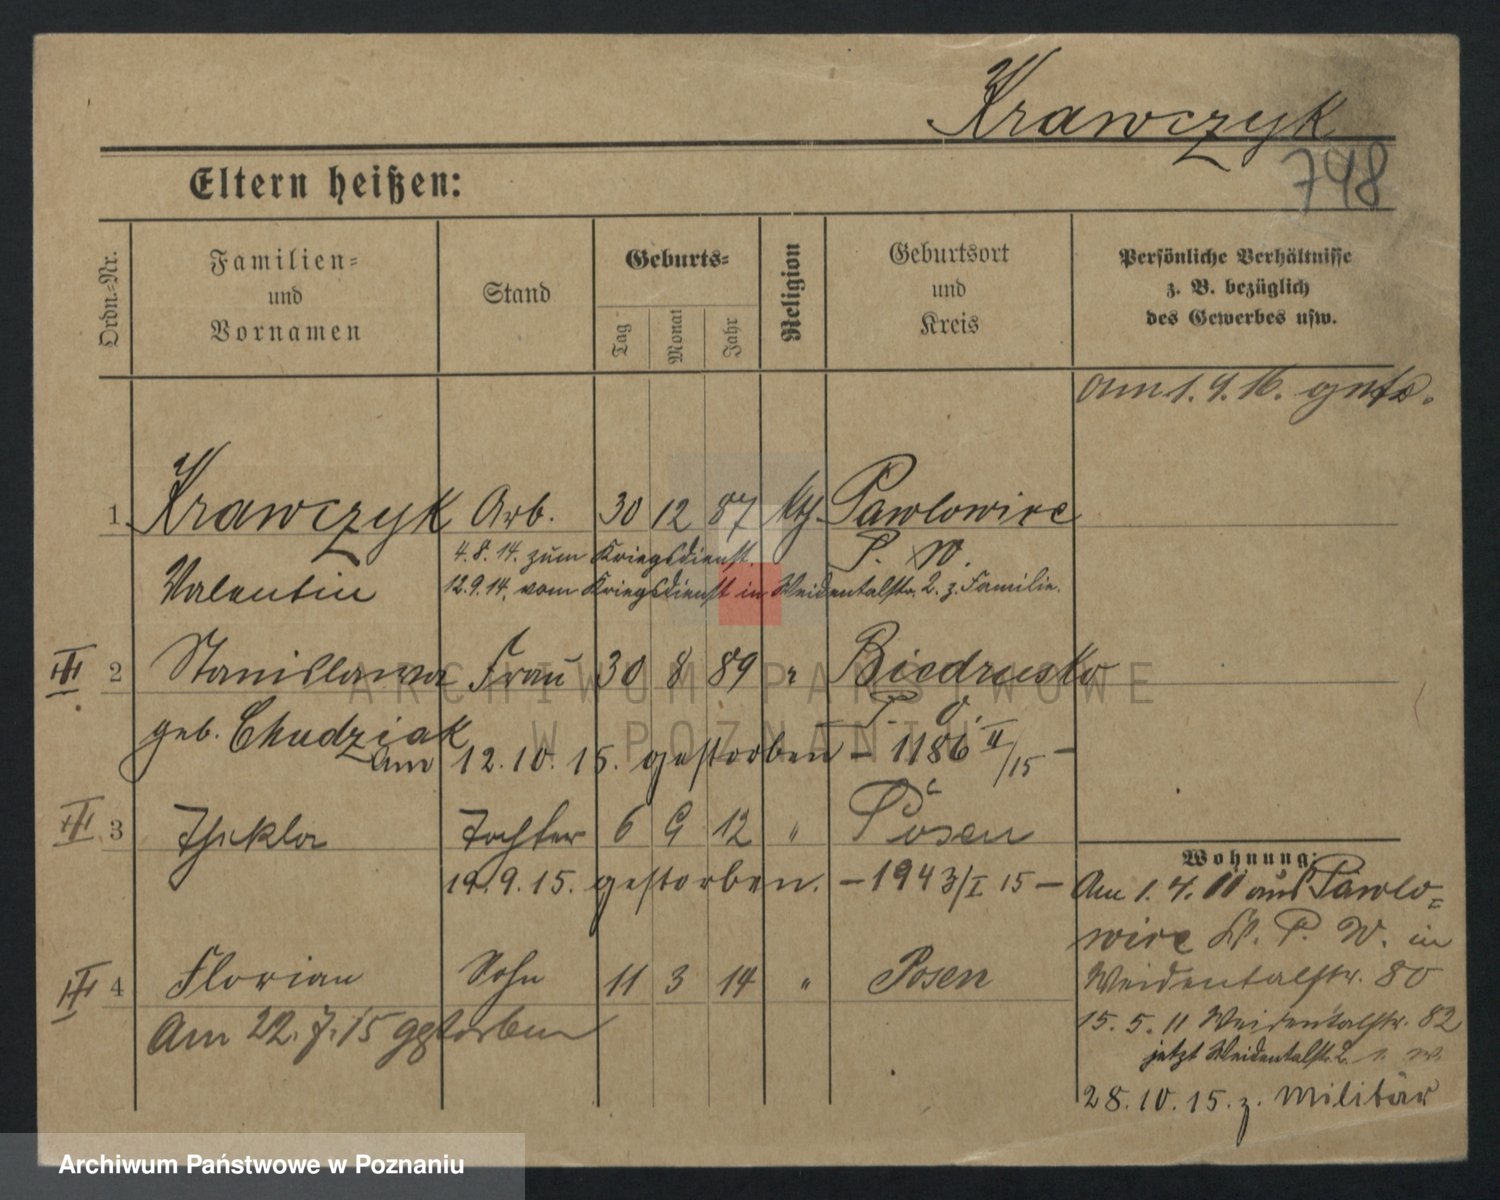 Krawczyk
748
Eltern heißen:
Ordn.=Nr.
Familien=
und
Vornamen
Stand
Geburts=
Tag
Monat
Jahr
Religion
Geburtsort
und
Kreis
Persönliche Verhältnisse
z. B. bezüglich
des Gewerbes usw.
am 1. 9. 16.
1 Krawczyk Arb. 30 12 87 kth Pawlowice
4. 8. 14. zum Kriegsdienst. P. W.
Valentin 12.9.14. vom Kriegsdienst in Weidentalstr. 2. z. Familie.
III 2 Stanislawa Frau 30 8 89 " Biedrusko
P. O.
geb. Chudziak
am 12. 10. 15. gestorben – 1186 II/15 –
III 3 Thekla Tochter 6 9 12 " Posen
19. 9. 15. gestorben. – 1943/I 15 –
III 4 Florian Sohn 11 3 14 " Posen
Am 22. 7. 15 gestorben
Wohnung:
Am 1. 4. 11 aus Pawlo=
wice Kr. P. W. in
Weidentalstr. 80
15. 5. 11 Weidentalstr. 82
jetzt Weidentalstr. 2.
28. 10. 15. z. Militär
ARCHIWUM PAŃSTWOWE
W POZNANIU
Archiwum Państwowe w Poznaniu